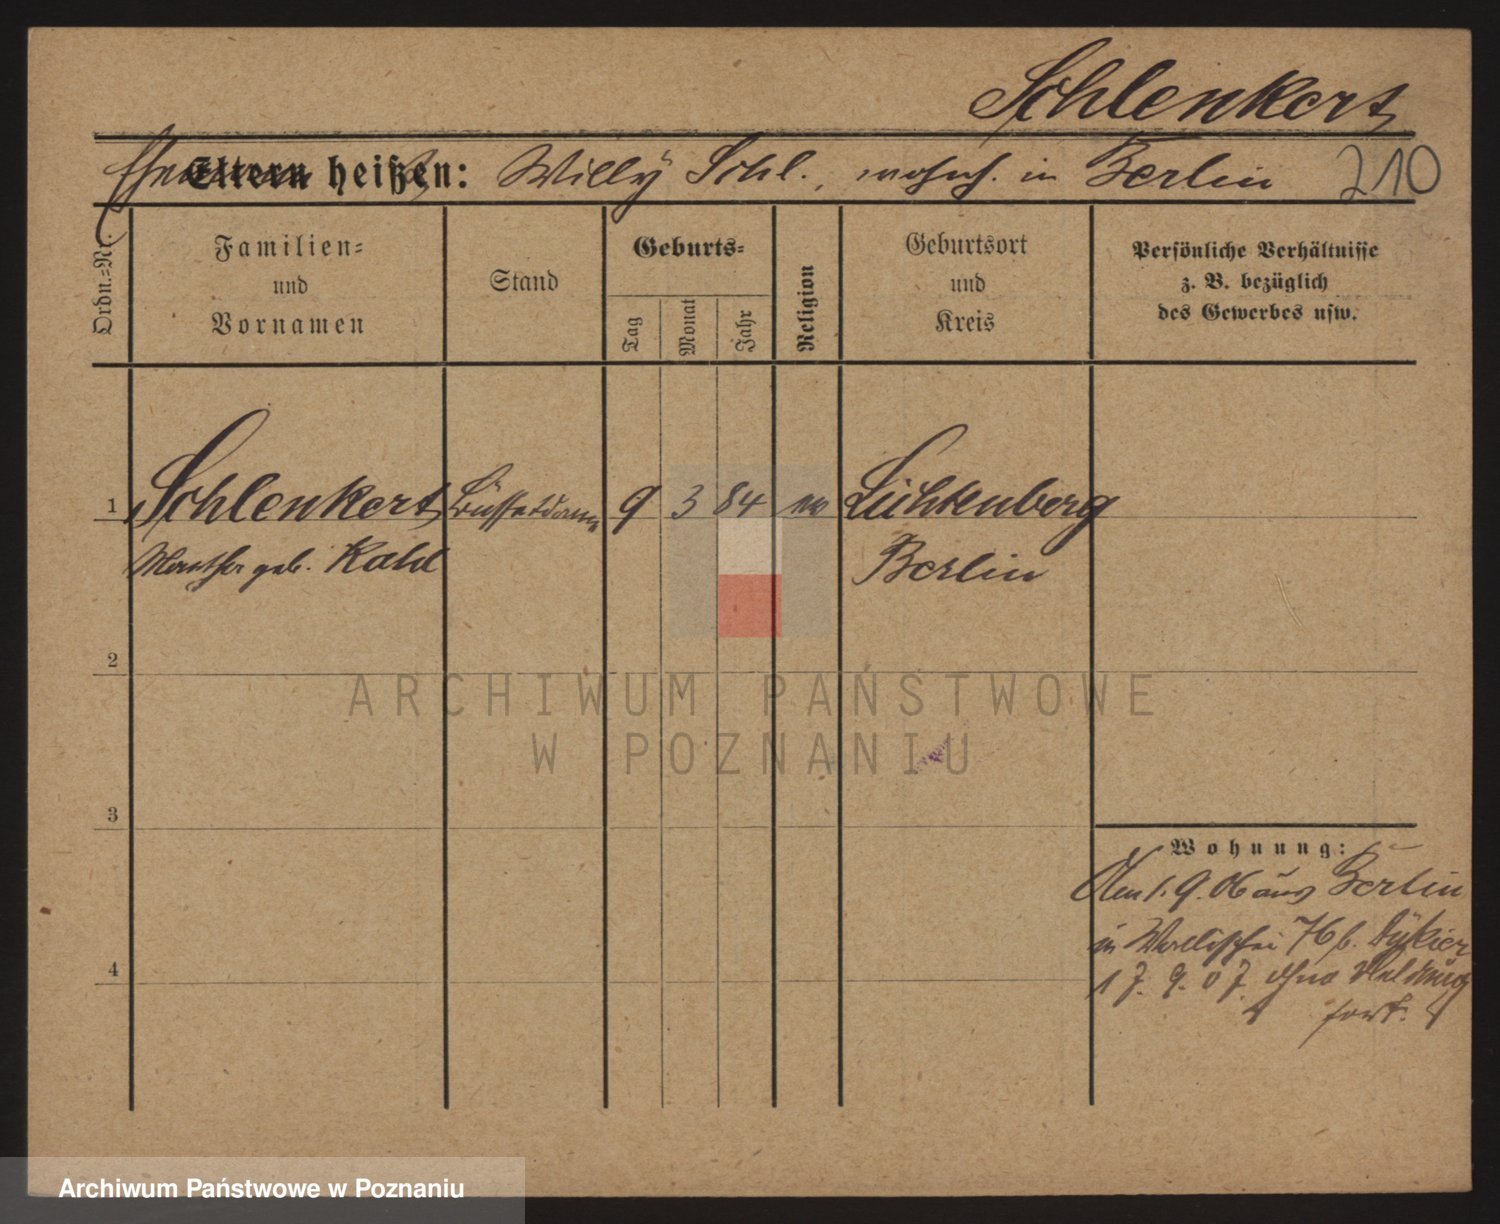 Schlenkert
Ehemann heißen: Willy Schl., wohnh. in Berlin 210
Eltern
Ordn.-Nr.
Familien-
und
Vornamen
Stand
Geburts-
Tag
Monat
Jahr
Religion
Geburtsort
und
Kreis
Persönliche Verhältnisse
z. B. bezüglich
des Gewerbes usw.
1 Schlenkert Büffetdame 9 3 84 Lichtenberg
Martha geb. Kahl Berlin
2
ARCHIWUM PAŃSTWOWE
W POZNANIU
3
Wohnung:
Den 1. 9. 06 aus Berlin
in Wallischei 76 b.
4
17. 9. 07 ohne Meldung
fort.
Archiwum Państwowe w Poznaniu